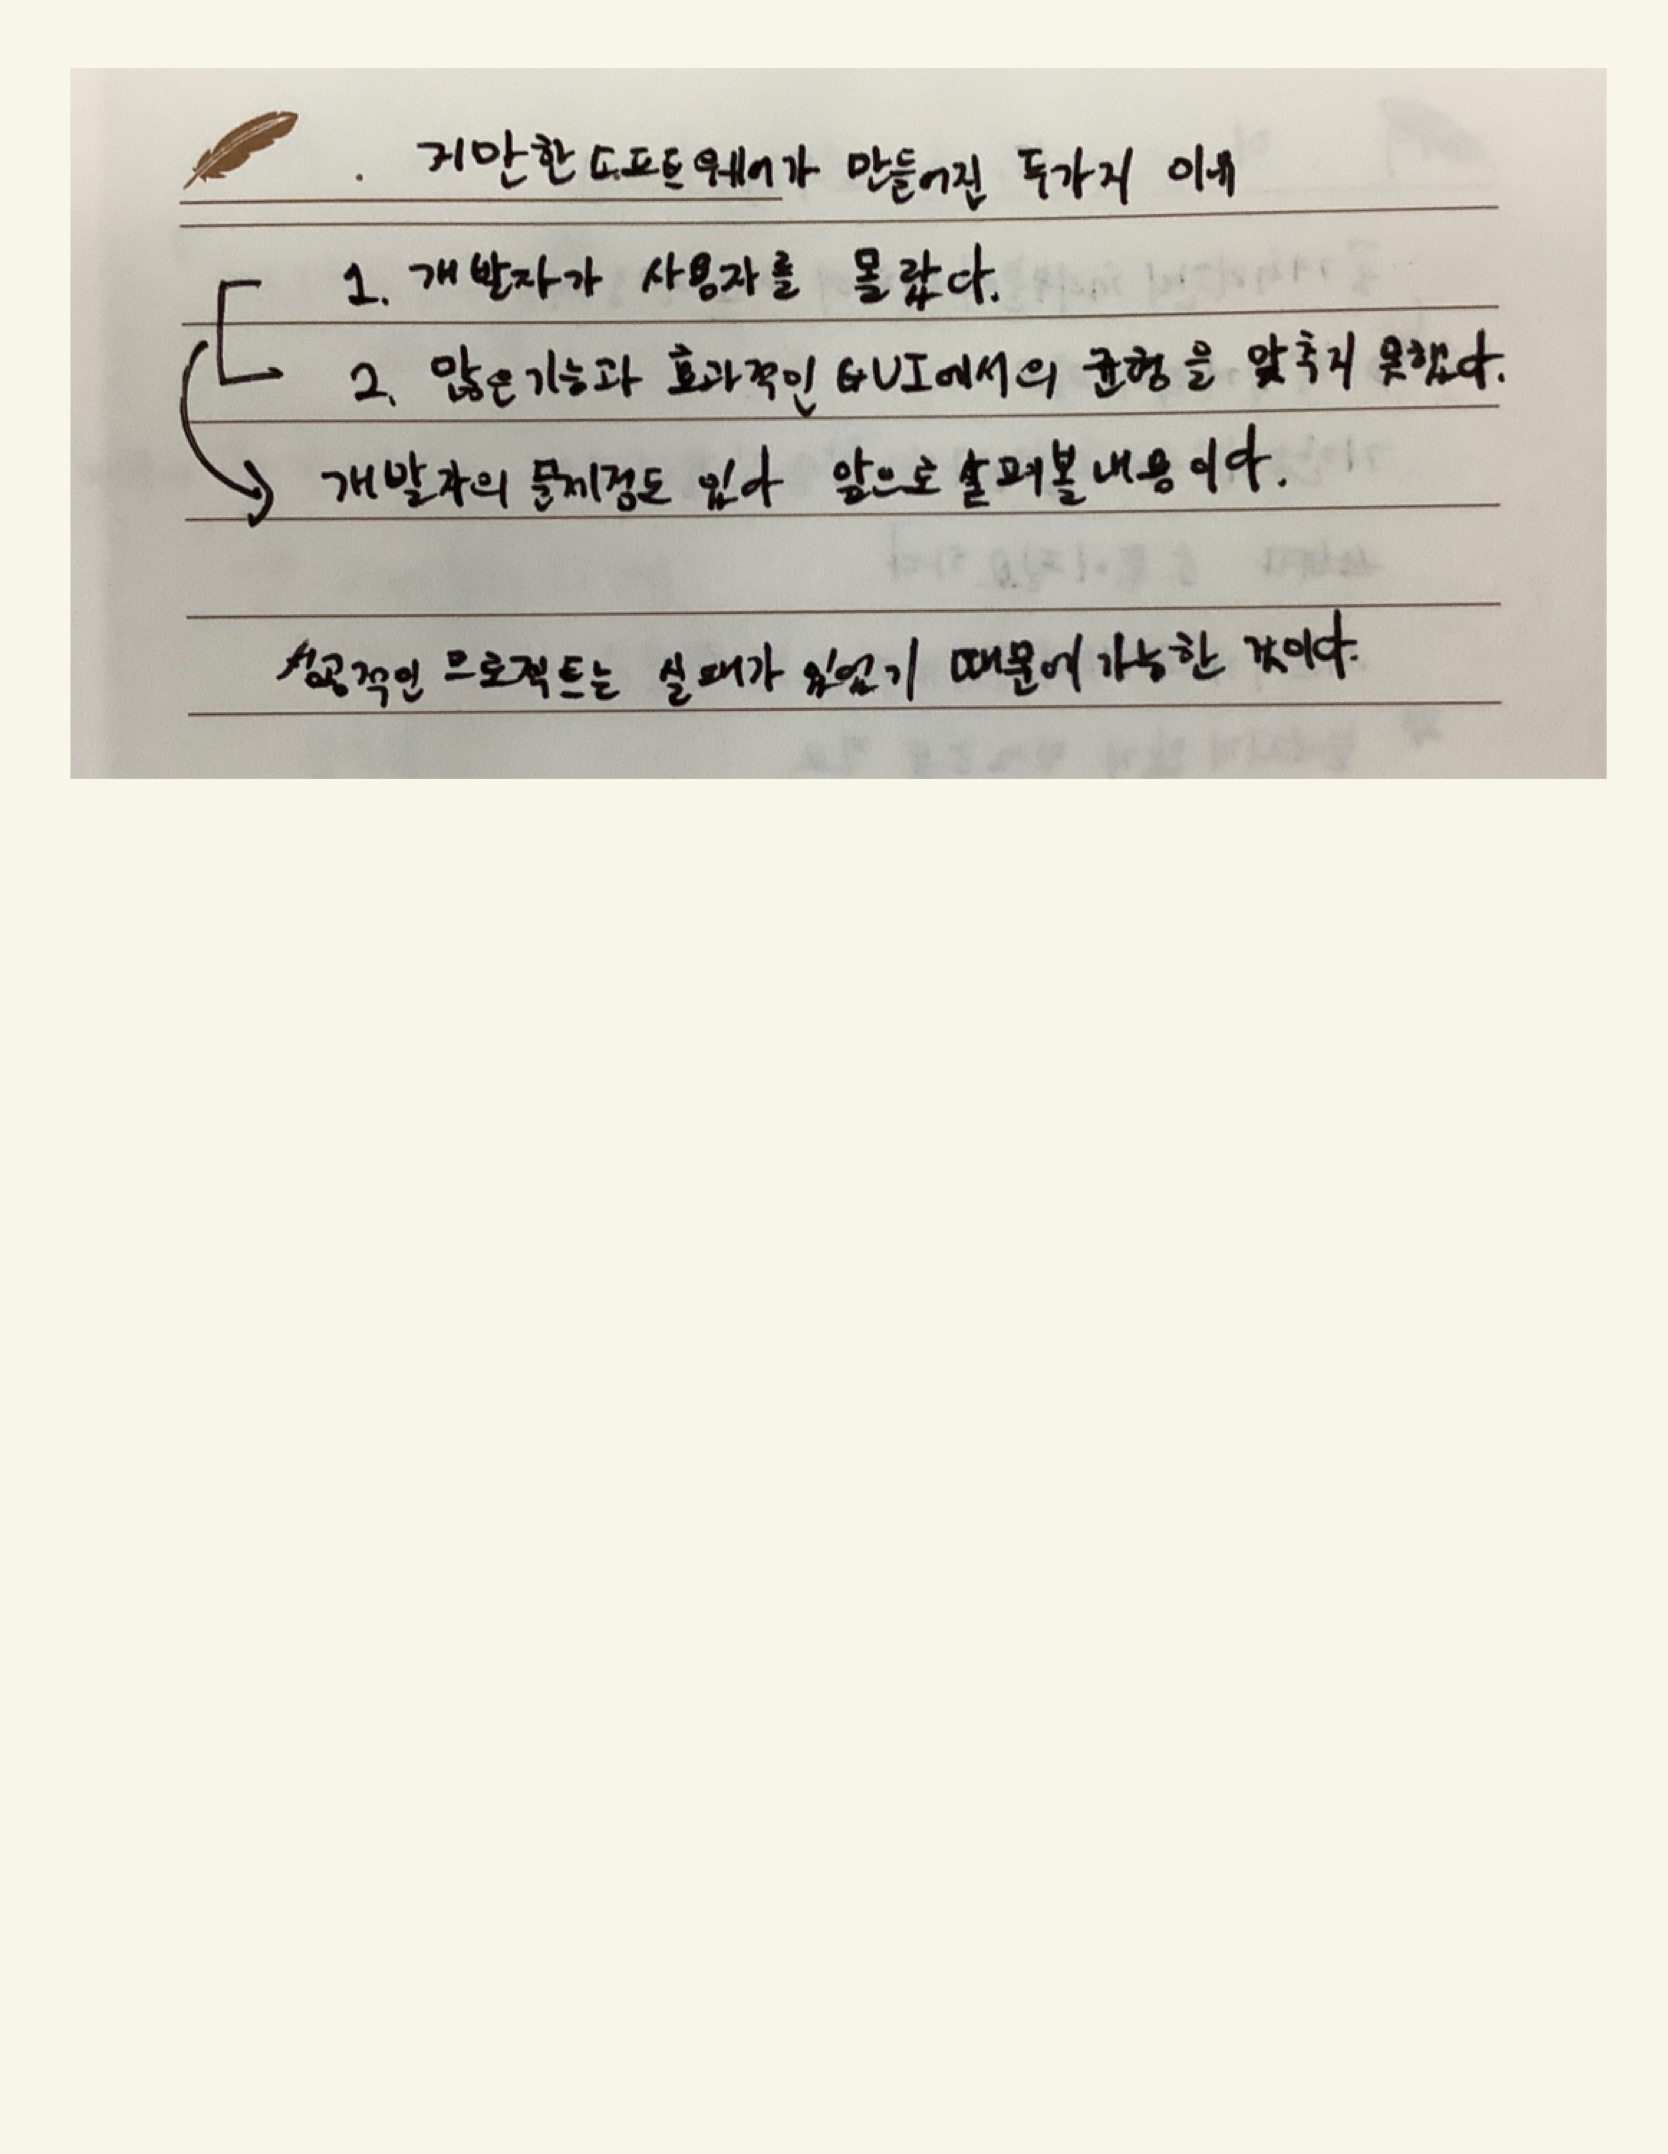 거만한 소프트웨어가 만들어진 두가지 이유
1. 개발자가 사용자를 몰랐다.
2. 많은기능과 효과적인 GUI에서의 균형을 맞추지 못했다.
개발자의 문제점도 있다 앞으로 살펴볼 내용이다.
성공적인 프로젝트는 실패가 있었기 때문에 가능한 것이다.